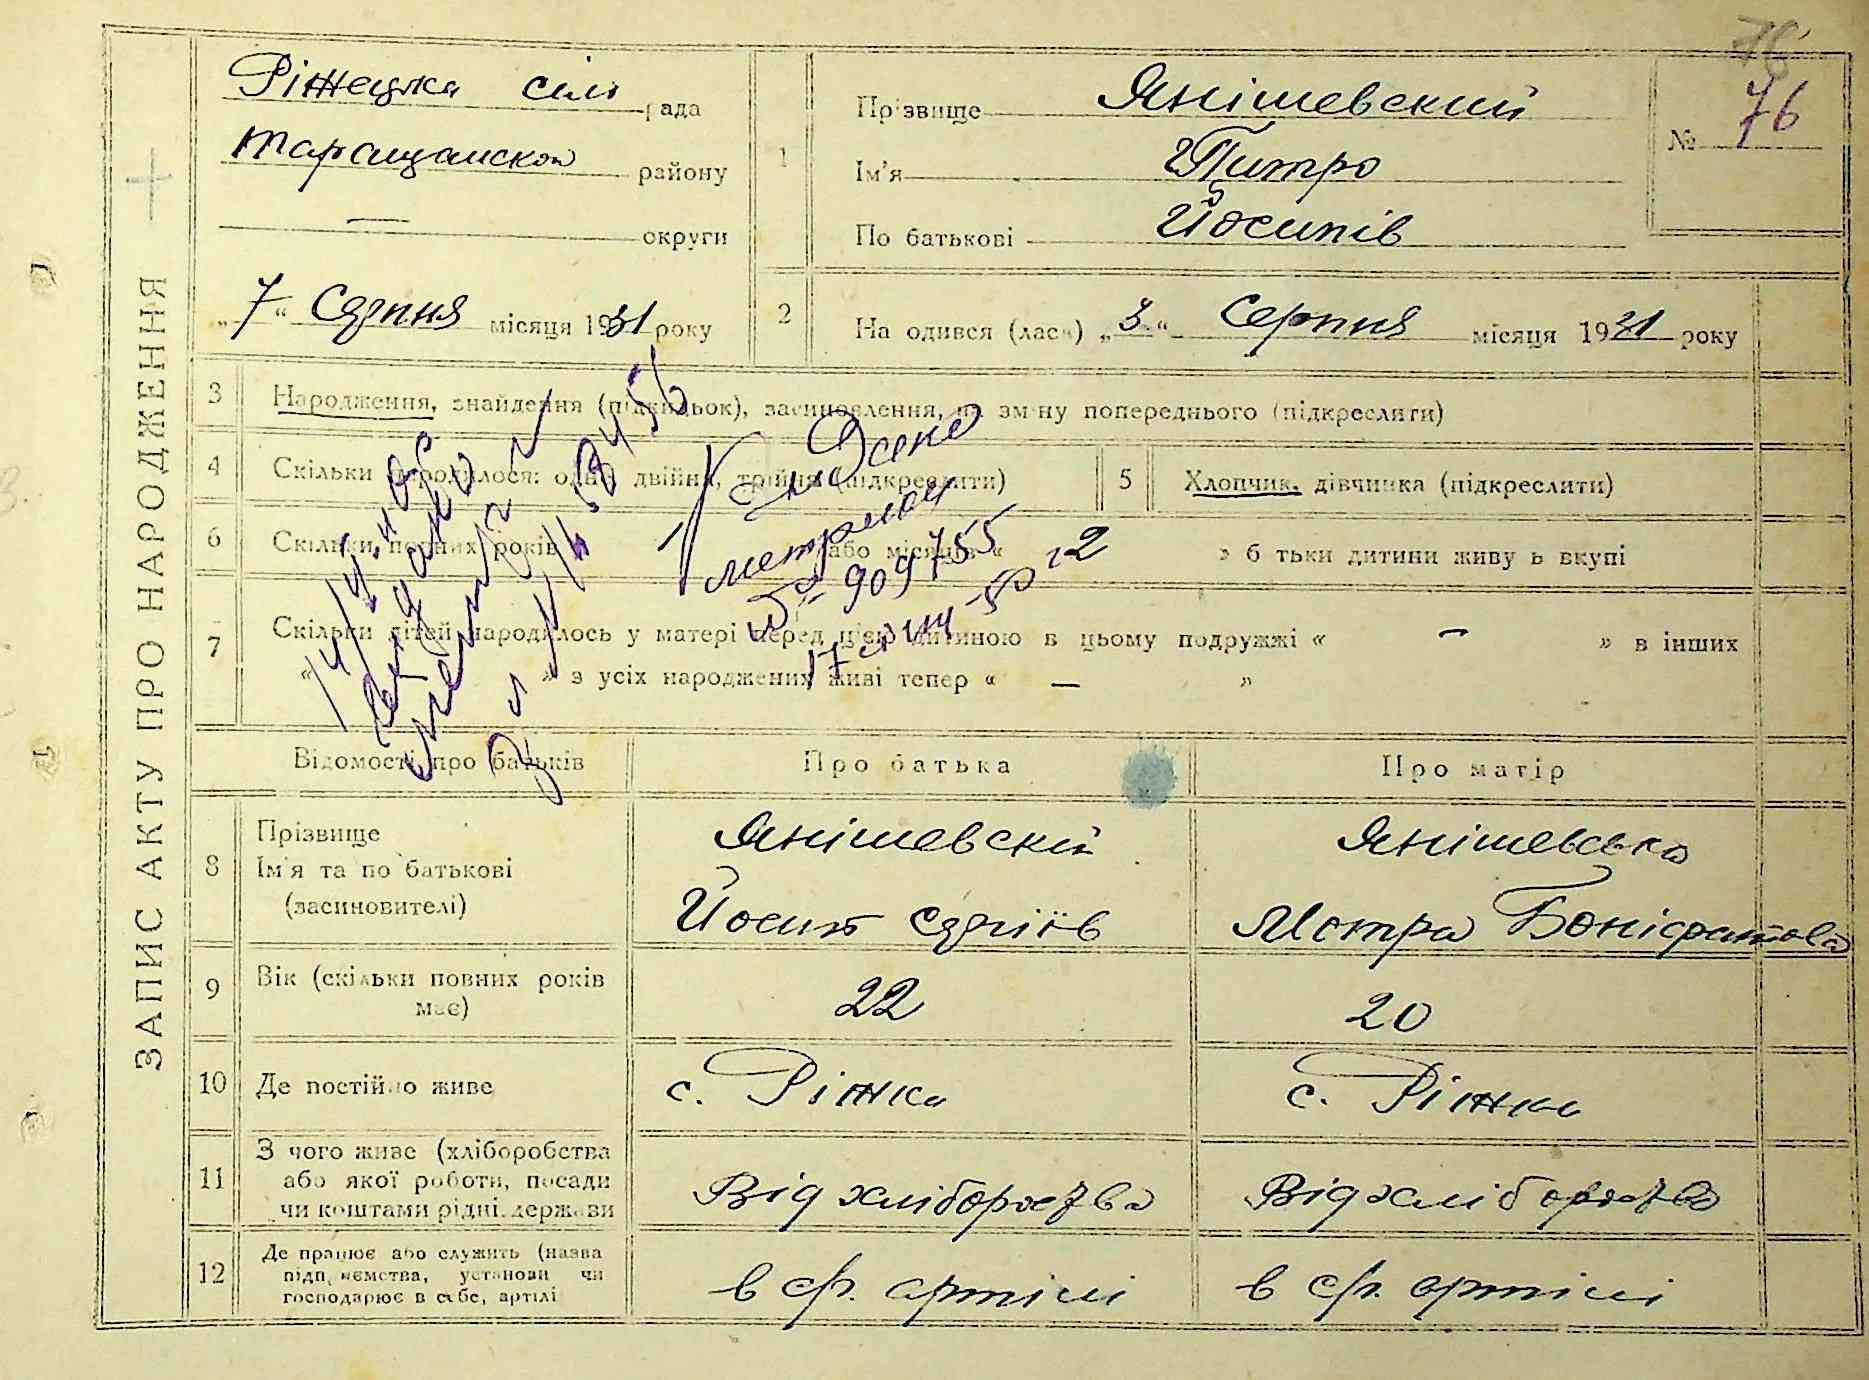 ЗАПИС АКТУ ПРО НАРОДЖЕННЯ
76
№ 76
Ріжецька сіль рада
Таращанскої району
— округи
„7“ Серпня місяця 1931 року
1
Прізвище Янішевский
Ім'я Питро
По батькові Йосипів
2 На одився (лася) „3“ Серпня місяця 1931 року
3 Народження, знайдення (підкидьок), засиновлення, на зміну попереднього (підкреслити)
4 Скільки народилося: одна двійня, трійня (підкреслити)
5 Хлопчик, дівчинка (підкреслити)
6 Скільки повних років або місяців « 2 » б тьки дитини живу ь вкупі
7 Скільки дітей народилось у матері перед цією дитиною в цьому подружжі « — » в інших
« » з усіх народжених живі тепер « — »
метрики
№ 909755
Відомості про батьків
Про батька
Про матір
8 Прізвище
Ім'я та по батькові
(засиновителі)
Янішевскій
Йосип Сергіїв
Янішевська
Мотра Боніфатова
9 Вік (скільки повних років має)
22
20
10 Де постійно живе
с. Ріжка
с. Ріжка
11 З чого живе (хліборобства
або якої роботи, посади
чи коштами рідні, держави
Від хліборозтва
Від хліборозтва
12 Де працює або служить (назва
підприємства, установи чи
господарює в себе, артілі
в с/г. артілі
в с/г. артілі